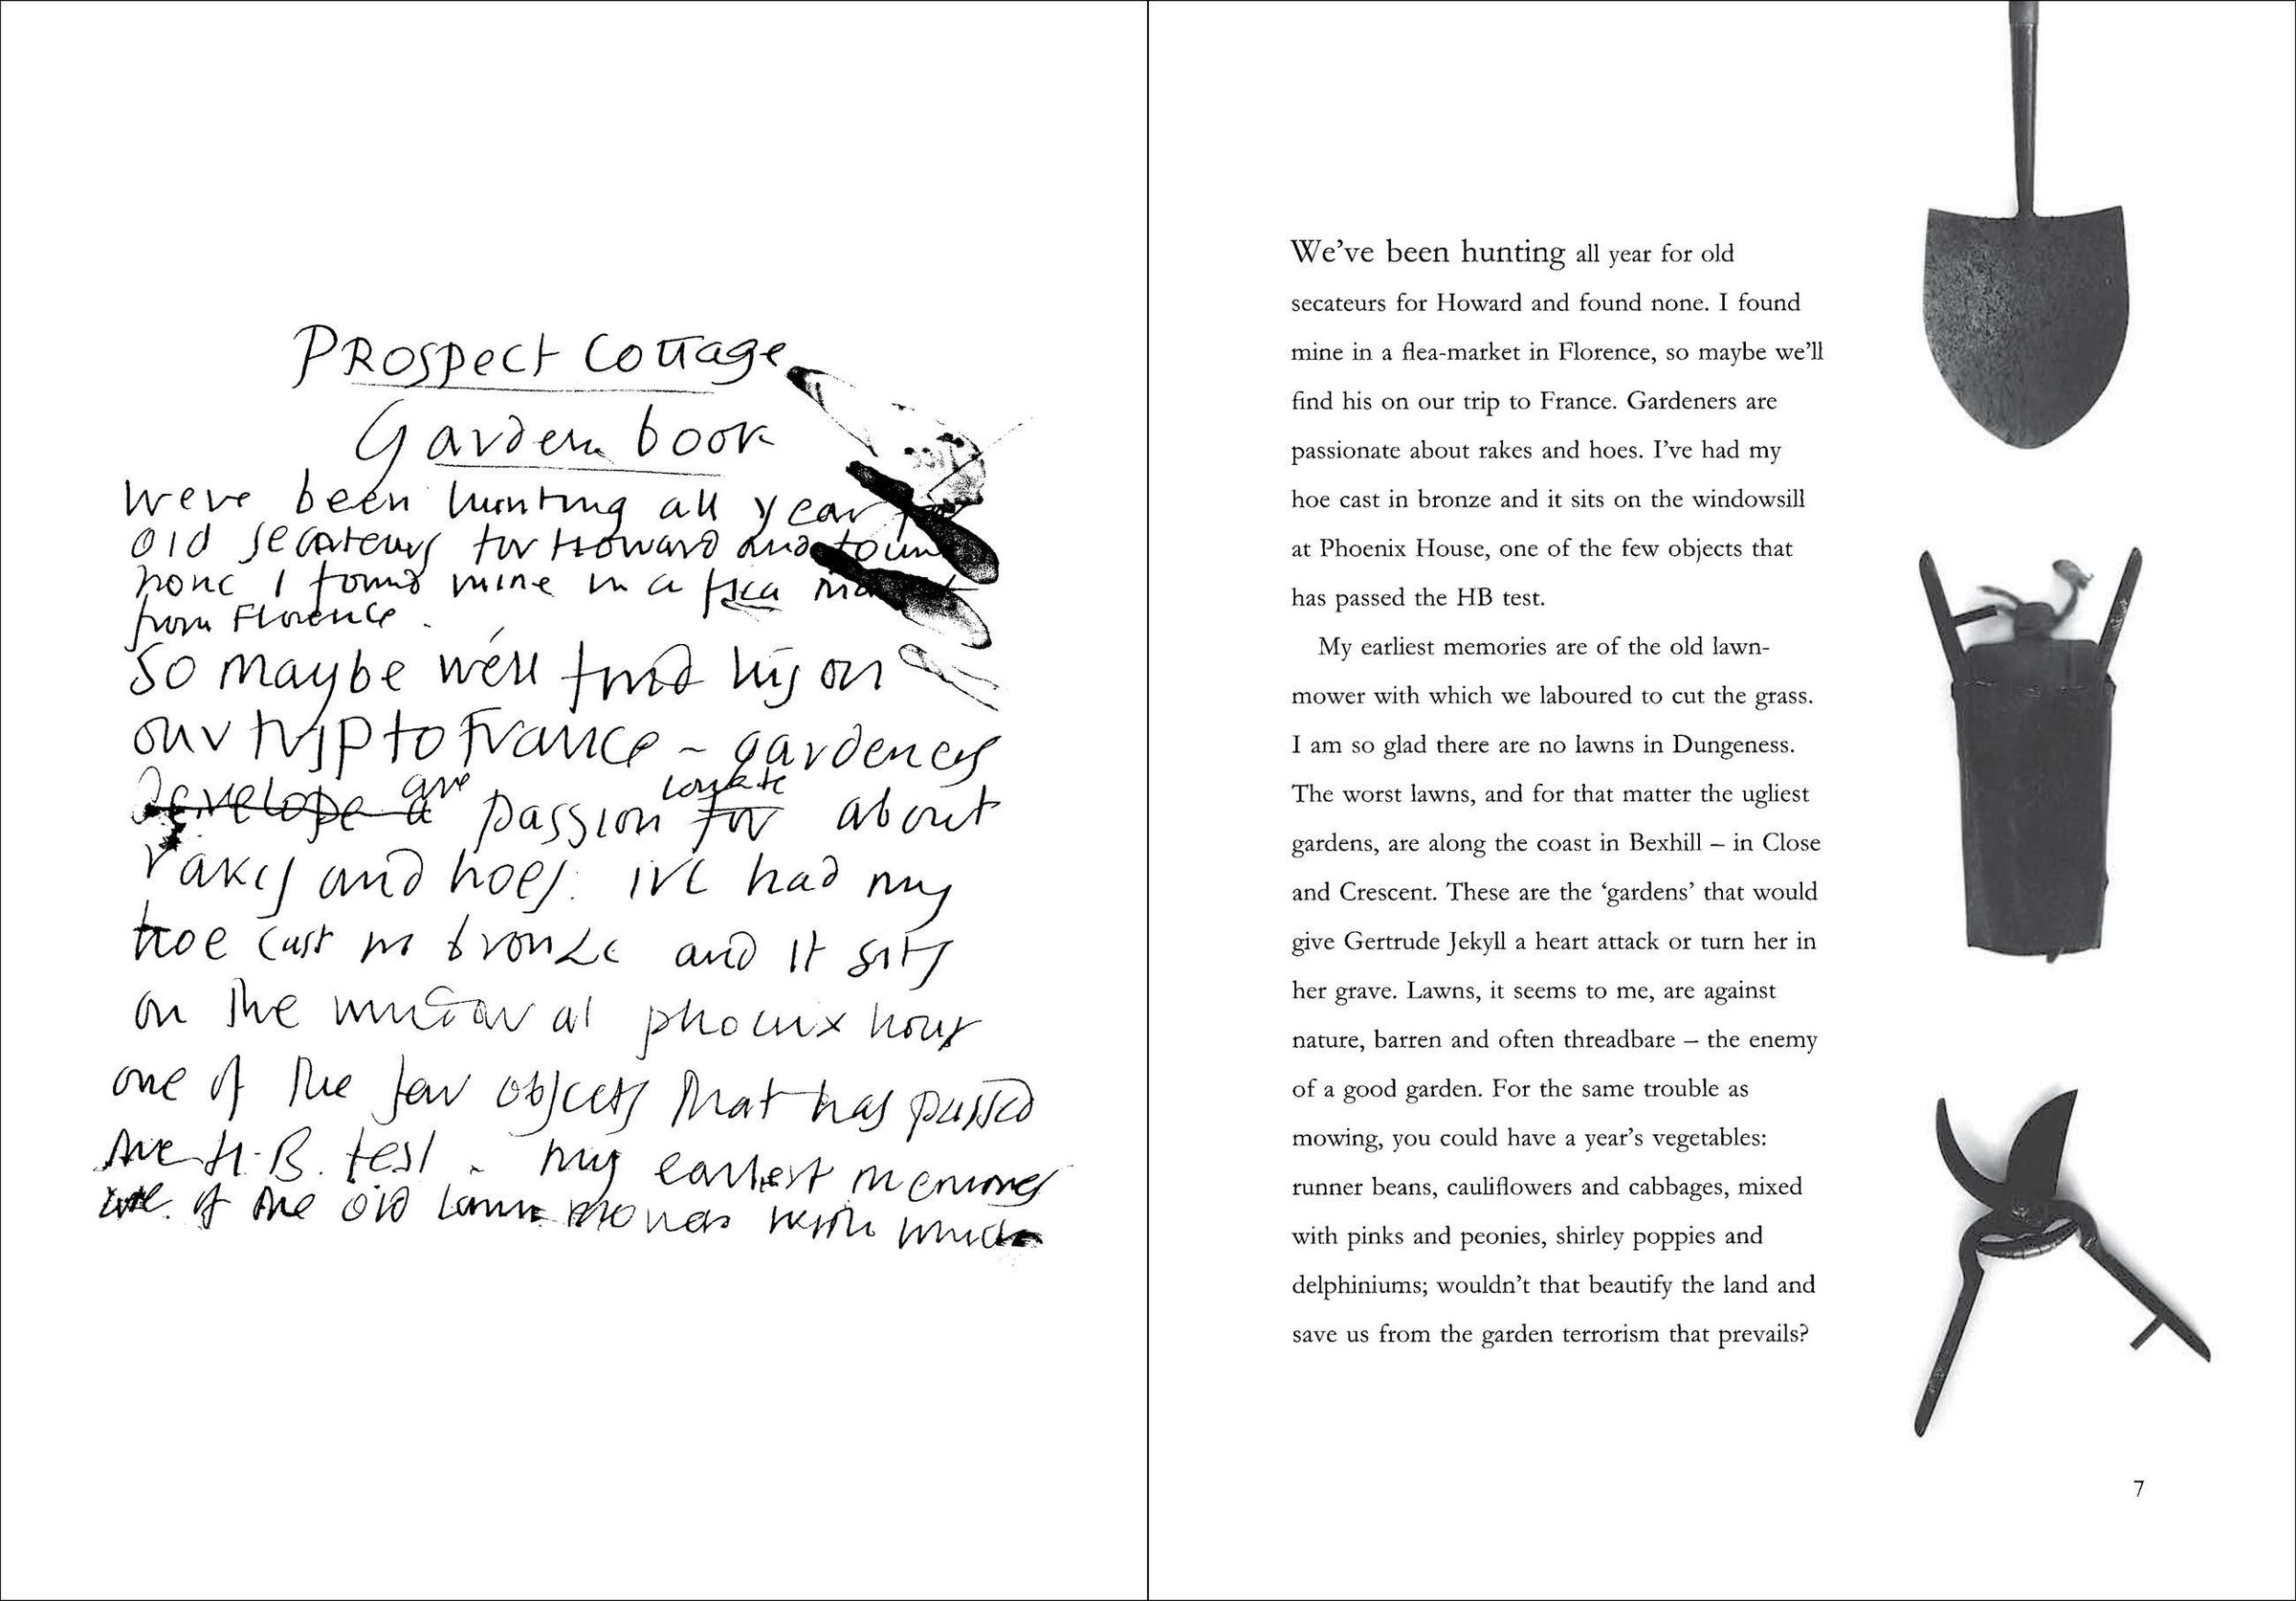 PROSPECT COTTAGE
Garden book
weve been hunting all year for
old secateurs for Howard and found
none I found mine in a flea market
from Florence.
So maybe we'll find his on
our trip to France ~ gardeners
develope a are passion ionate for about
rakes and hoes. Ive had my
hoe cast in bronze and it sits
on the window at phoenix house
one of the few objects that has passed
the H.B. test. my earliest memories
are of the old lawn mower with which
We've been hunting all year for old
secateurs for Howard and found none. I found
mine in a flea-market in Florence, so maybe we'll
find his on our trip to France. Gardeners are
passionate about rakes and hoes. I've had my
hoe cast in bronze and it sits on the windowsill
at Phoenix House, one of the few objects that
has passed the HB test.
My earliest memories are of the old lawn-
mower with which we laboured to cut the grass.
I am so glad there are no lawns in Dungeness.
The worst lawns, and for that matter the ugliest
gardens, are along the coast in Bexhill – in Close
and Crescent. These are the 'gardens' that would
give Gertrude Jekyll a heart attack or turn her in
her grave. Lawns, it seems to me, are against
nature, barren and often threadbare – the enemy
of a good garden. For the same trouble as
mowing, you could have a year's vegetables:
runner beans, cauliflowers and cabbages, mixed
with pinks and peonies, shirley poppies and
delphiniums; wouldn't that beautify the land and
save us from the garden terrorism that prevails?
7